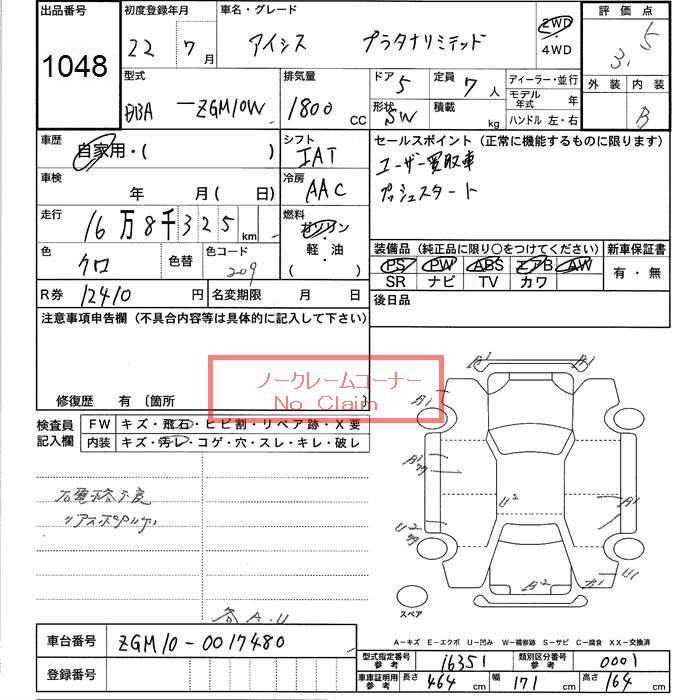 出品番号 1048
初度登録年月 22 7月
車名・グレード アイシス プラタナリミテッド
2WD
4WD
評価点 3.5
外装 内装 B
型式 DBA-ZGM10W
排気量 1800 CC
ドア 5
定員 7人
形状 SW
積載 kg
ディーラー・並行
モデル年式 年
ハンドル 左・右
車歴 自家用・( )
シフト IAT
車検 年 月( 日)
冷房 AAC
走行 16万8千325km
燃料 ガソリン・軽・油( )
色 クロ 色替 色コード 209
R券 12410円 名変期限 月 日
セールスポイント(正常に機能するものに限ります)
ユーザー買取車
プッシュスタート
装備品(純正品に限り○をつけてください) 新車保証書
PS PW ABS エアB AW
SR ナビ TV カワ
有・無
後日品
注意事項申告欄(不具合内容等は具体的に記入して下さい)
ノークレームコーナー
No Claim
修復歴 有〔箇所 〕
検査員記入欄
FW キズ・飛石・ヒビ割・リペア跡・X要
内装 キズ・汚レ・コゲ・穴・スレ・キレ・破レ
各A.U
A1 A1
A1
U2
A1
B2
B1 U1
スペア
A-キズ E-エクボ U-凹み W-補修跡 S-サビ C-腐食 XX-交換済
車台番号 ZGM10-0017480
登録番号
型式指定番号 参考 16351
類別区分番号 参考 0001
車庫証明用 参考 長さ 464cm 幅 171cm 高さ 164cm